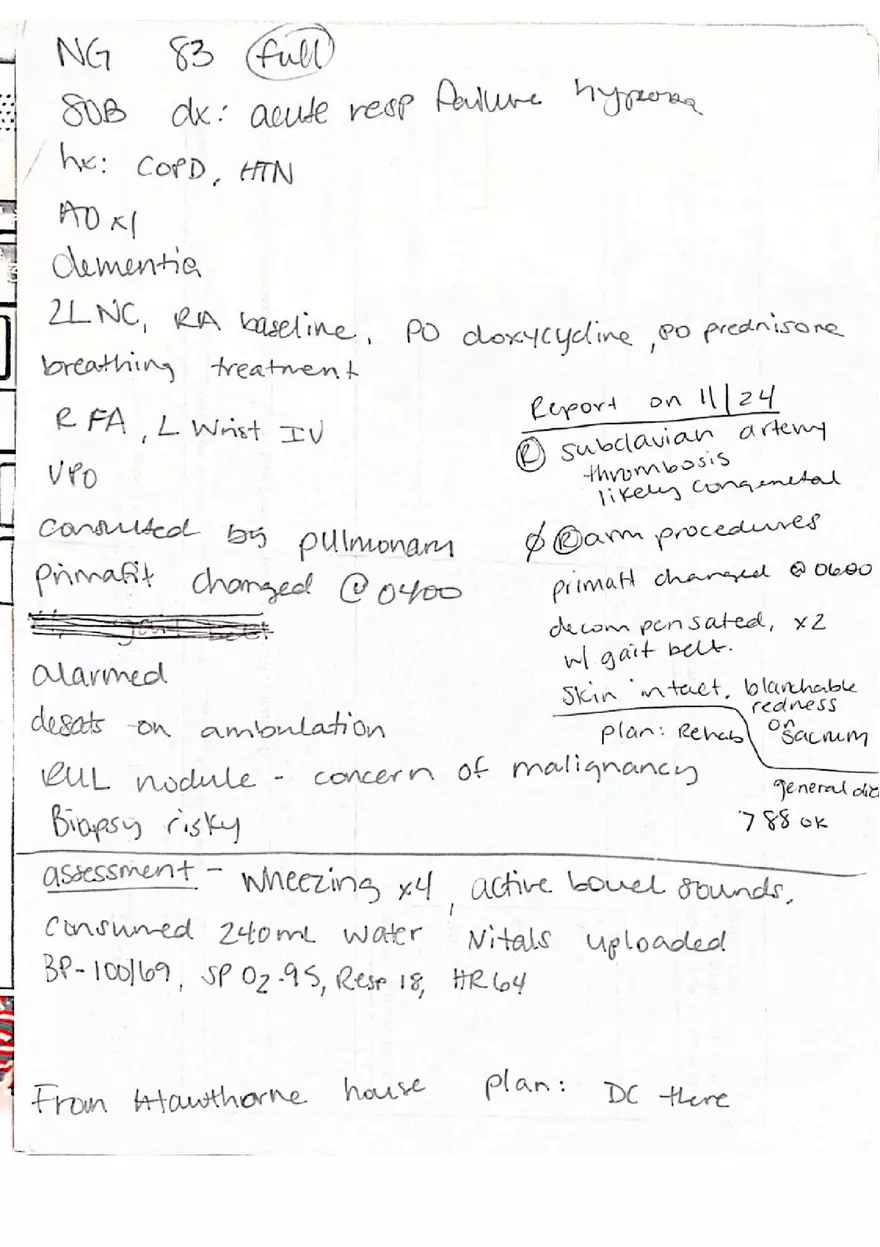 NG 83 full
SOB dx: acute resp failure hypoxia
hx: COPD, HTN
AO x1
dementia
2L NC, RA baseline, PO doxycycline, PO prednisone
breathing treatment
R FA, L Wrist IV
VPO
consulted by pulmonary
Primafit changed @ 0400
alarmed
desats on ambulation
RUL nodule - concern of malignancy
Biopsy risky
Report on 11/24
Ⓡ subclavian artery
thrombosis
likely congenetal
∅ Ⓡ arm procedures
primafit changed @ 0600
decompensated, x2
w/ gait belt.
Skin intact, blanchable
redness
on
sacrum
plan: Rehab
general diet
788 ok
assessment - wheezing x4, active bowel sounds,
Consumed 240mL water Vitals uploaded
BP-100/69, SP O2-95, Resp 18, HR 64
From Hawthorne house plan: DC there